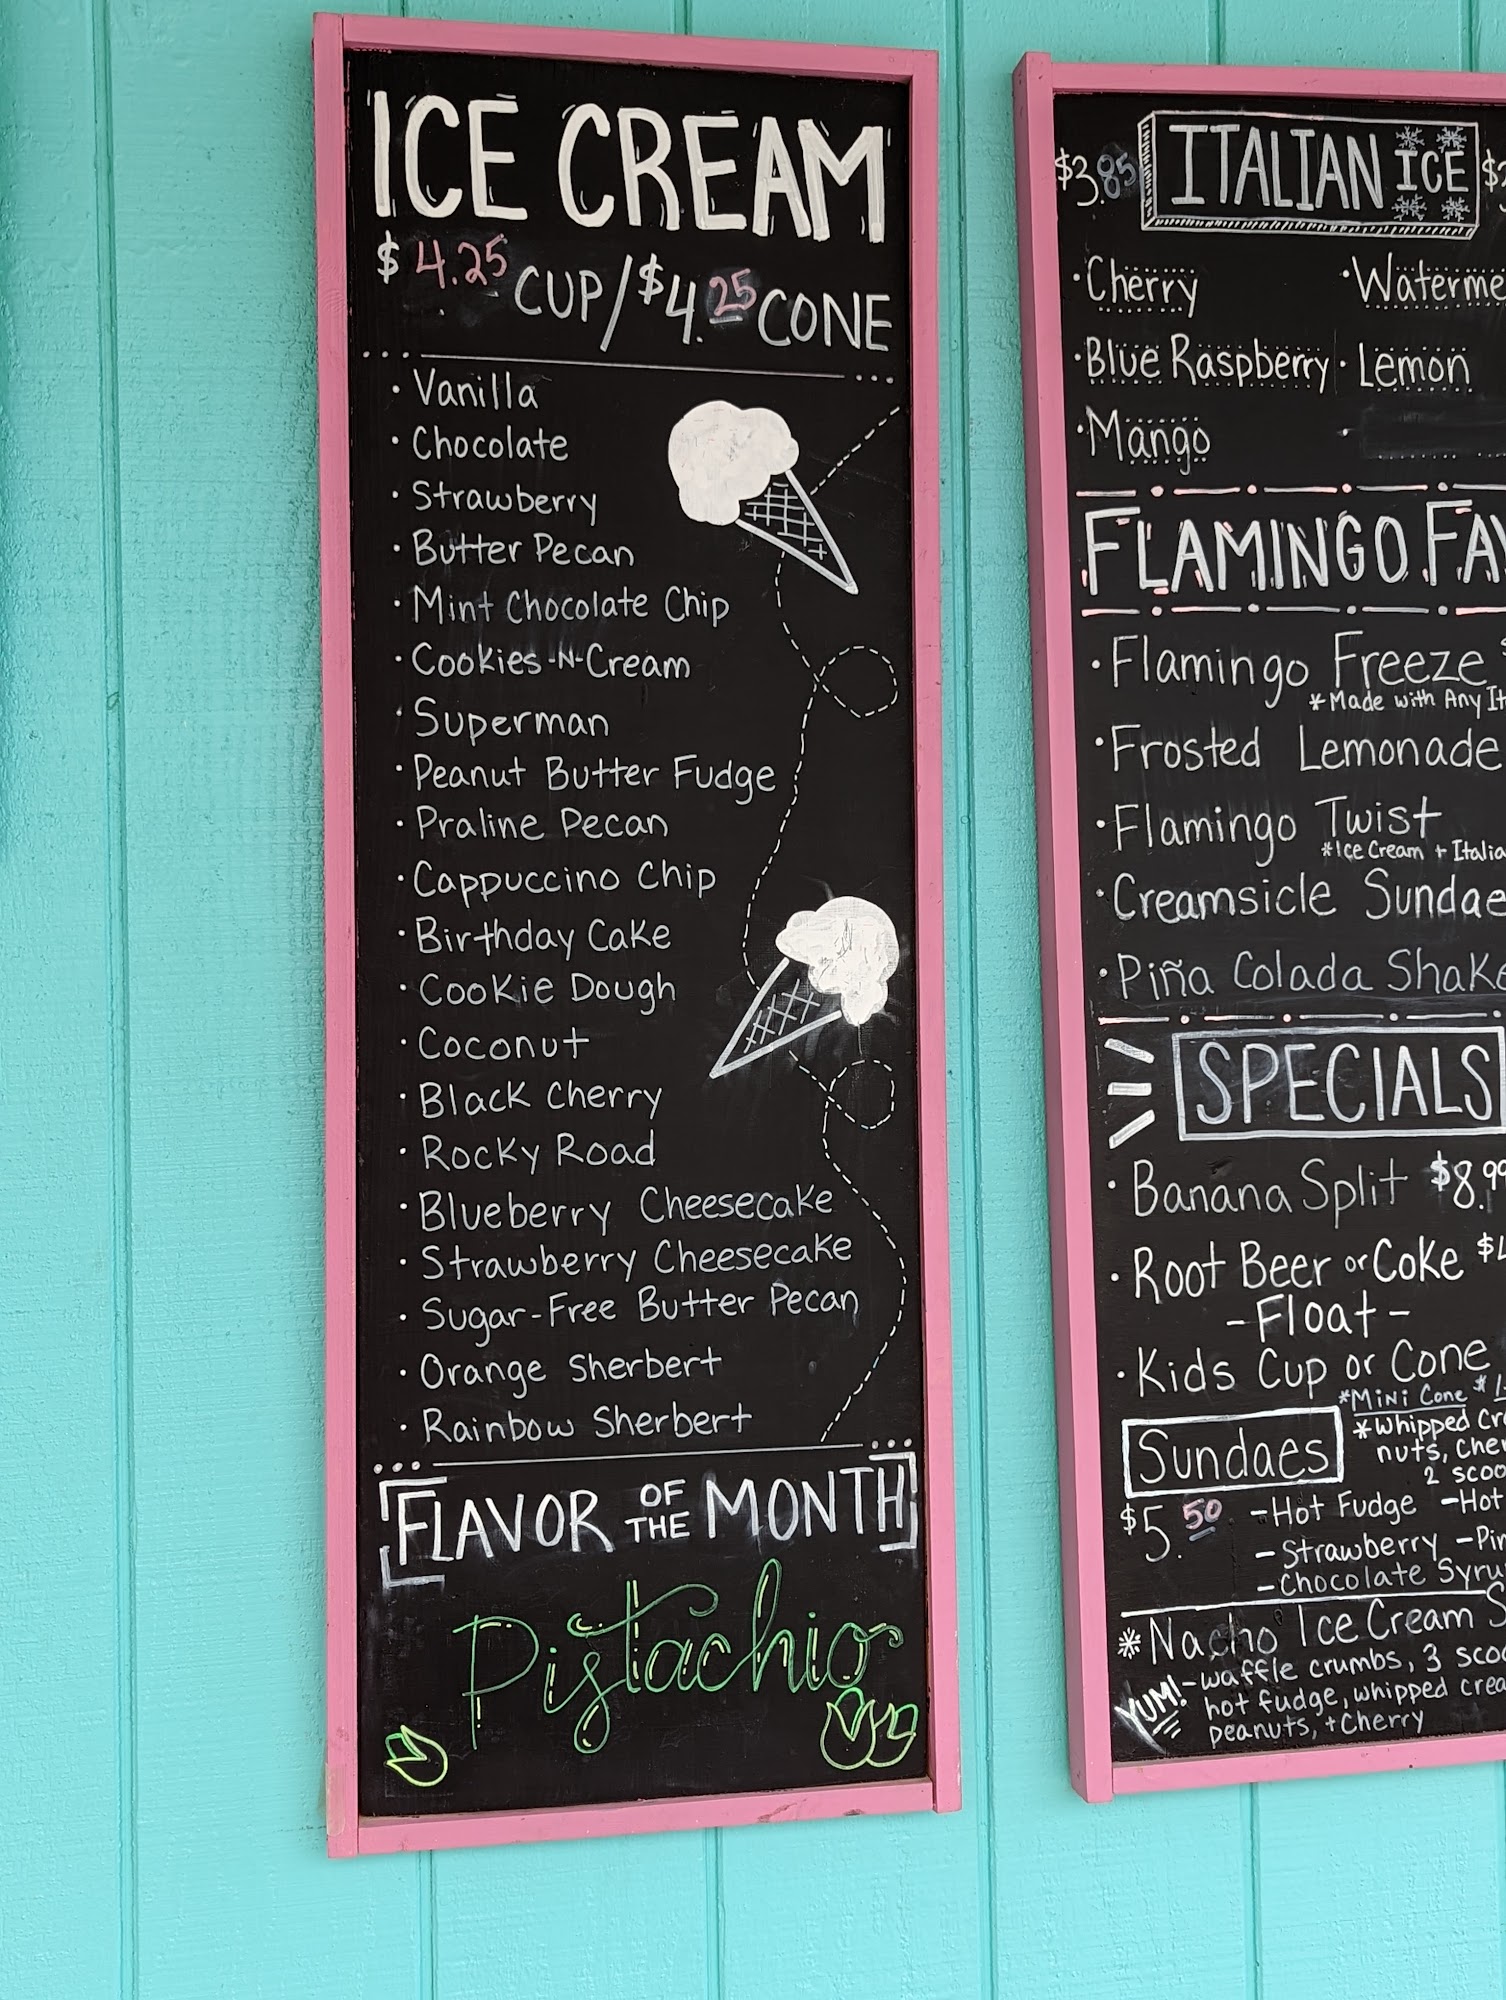 ICE CREAM
$4.25 CUP/$4.25 CONE
• Vanilla
• Chocolate
• Strawberry
• Butter Pecan
• Mint Chocolate Chip
• Cookies-N-Cream
• Superman
• Peanut Butter Fudge
• Praline Pecan
• Cappuccino Chip
• Birthday Cake
• Cookie Dough
• Coconut
• Black Cherry
• Rocky Road
• Blueberry Cheesecake
• Strawberry Cheesecake
• Sugar-Free Butter Pecan
• Orange Sherbert
• Rainbow Sherbert
FLAVOR OF THE MONTH
Pistachio
$3.85 ITALIAN ICE
• Cherry
• Blue Raspberry • Lemon
• Mango
FLAMINGO
• Flamingo Freeze
*Made with Any
• Frosted Lemonade
• Flamingo Twist
*Ice Cream +
• Creamsicle
• Piña Colada
SPECIALS
• Banana Split $8.99
• Root Beer or Coke
- Float -
• Kids Cup or Cone
*Mini Cone
*Whipped
nuts,
2
Sundaes
$5.50 -Hot Fudge -Hot
- Strawberry
- Chocolate
* Nacho Ice Cream
YUM! - waffle crumbs, 3
hot fudge, whipped
peanuts, + Cherry